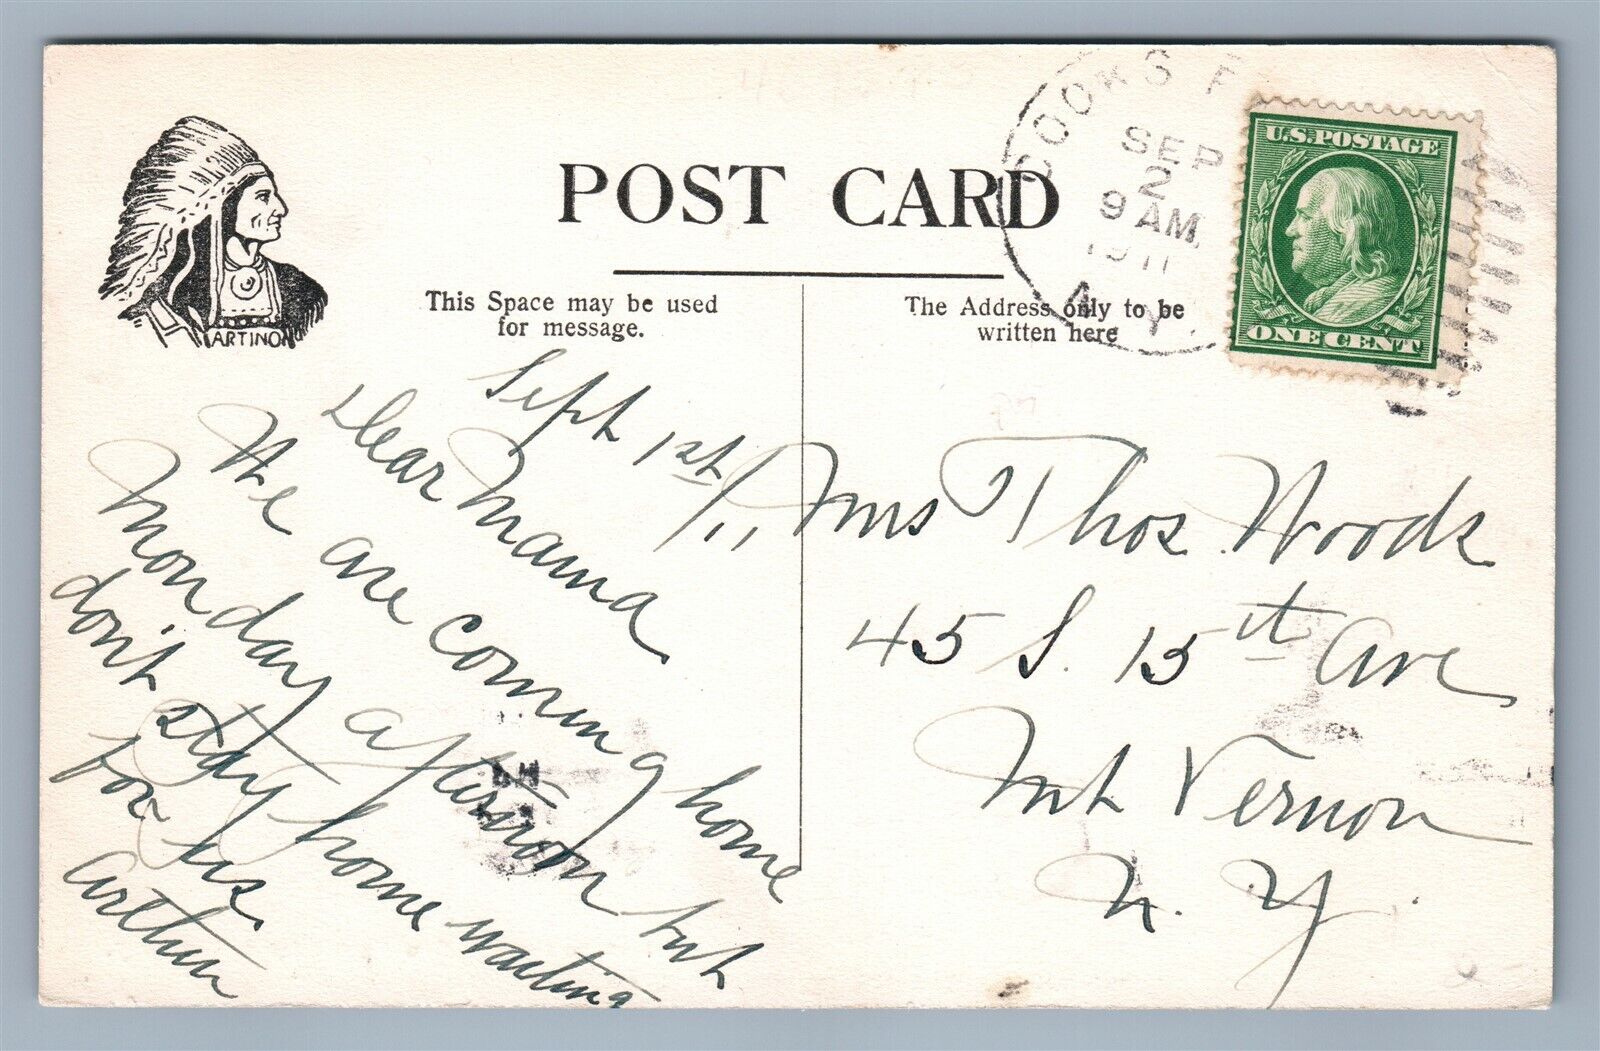 POST CARD
ARTINO
This Space may be used
for message.
The Address only to be
written here
COOKS F
SEP
2
9 AM
1911
N.Y.
U.S. POSTAGE
ONE CENT
Sept 1st/11
Dear Mama
We are coming home
Monday afternoon but
don't stay home waiting
for us
Arthur
Mrs Thos. Woods
45 S. 15th Ave
Mt Vernon
N. Y.